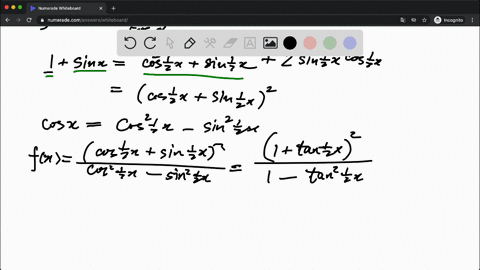 Numerade Whiteboard
numerade.com/answers/whiteboard/
Incognito
1 + sinx = cos½x + sin½x + 2 sin½x cos½x
= (cos½x + sin½x)²
cosx = cos²½x − sin²½x
f(x) = (cos½x + sin½x)² / cos²½x − sin²½x = (1 + tan½x)² / 1 − tan²½x